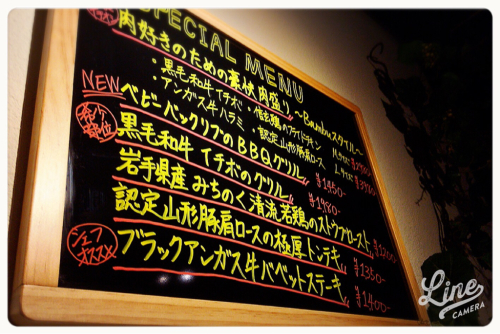 SPECIAL MENU
肉好きのための豪快肉盛り ～Bambuスタイル～
・黒毛和牛イチボ ・信玄鶏のフライドチキン Mサイズ
・アンガス牛ハラミ ・認定山形豚肩ロース Lサイズ
NEW
ベビーバックリブのBBQグリル ¥1450
希少部位
黒毛和牛 イチボのグリル ¥1980
岩手県産みちのく清流若鶏のストウブロースト ¥1200
認定山形豚肩ロースの極厚トンテキ ¥1350
シェフオススメ
ブラックアンガス牛バベットステーキ ¥1400
Line
CAMERA